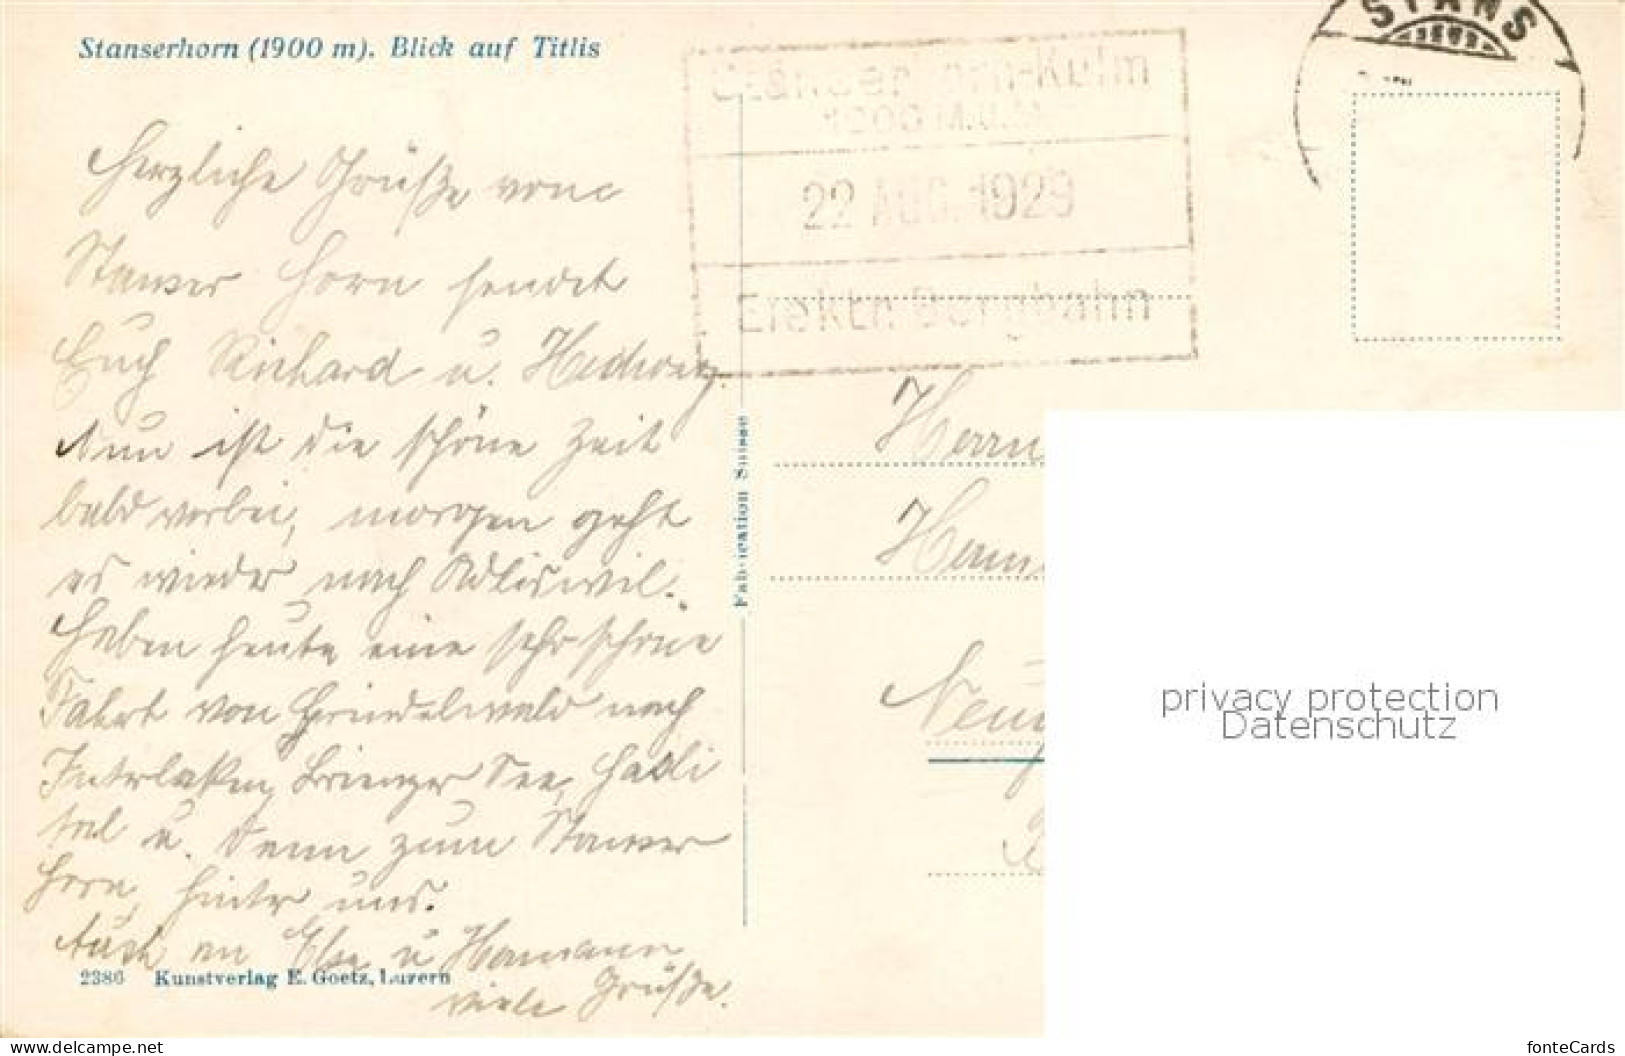 Stanserhorn (1900 m). Blick auf Titlis
STANS
Stanserhorn-Kulm
1900 M.ü.M
22 AUG. 1929
Elektr. Bergbahn
Herzliche Grüße vom
Stanser Horn sendet
Euch Richard u. Hedwig.
Nun ist die schöne Zeit
bald vorbei, morgen geht
es wieder nach Adliswil.
Haben heute eine sehr schöne
Fahrt von Grindelwald nach
Interlaken, Brienzer See, Hasli
tal u. denn zum Stanser
Horn, hinter uns.
Auch an Else u Hermann
viele Grüße.
2386 Kunstverlag E. Goetz, Luzern
Fabrication Suisse
Herrn
privacy protection
Datenschutz
www.delcampe.net
fonteCards